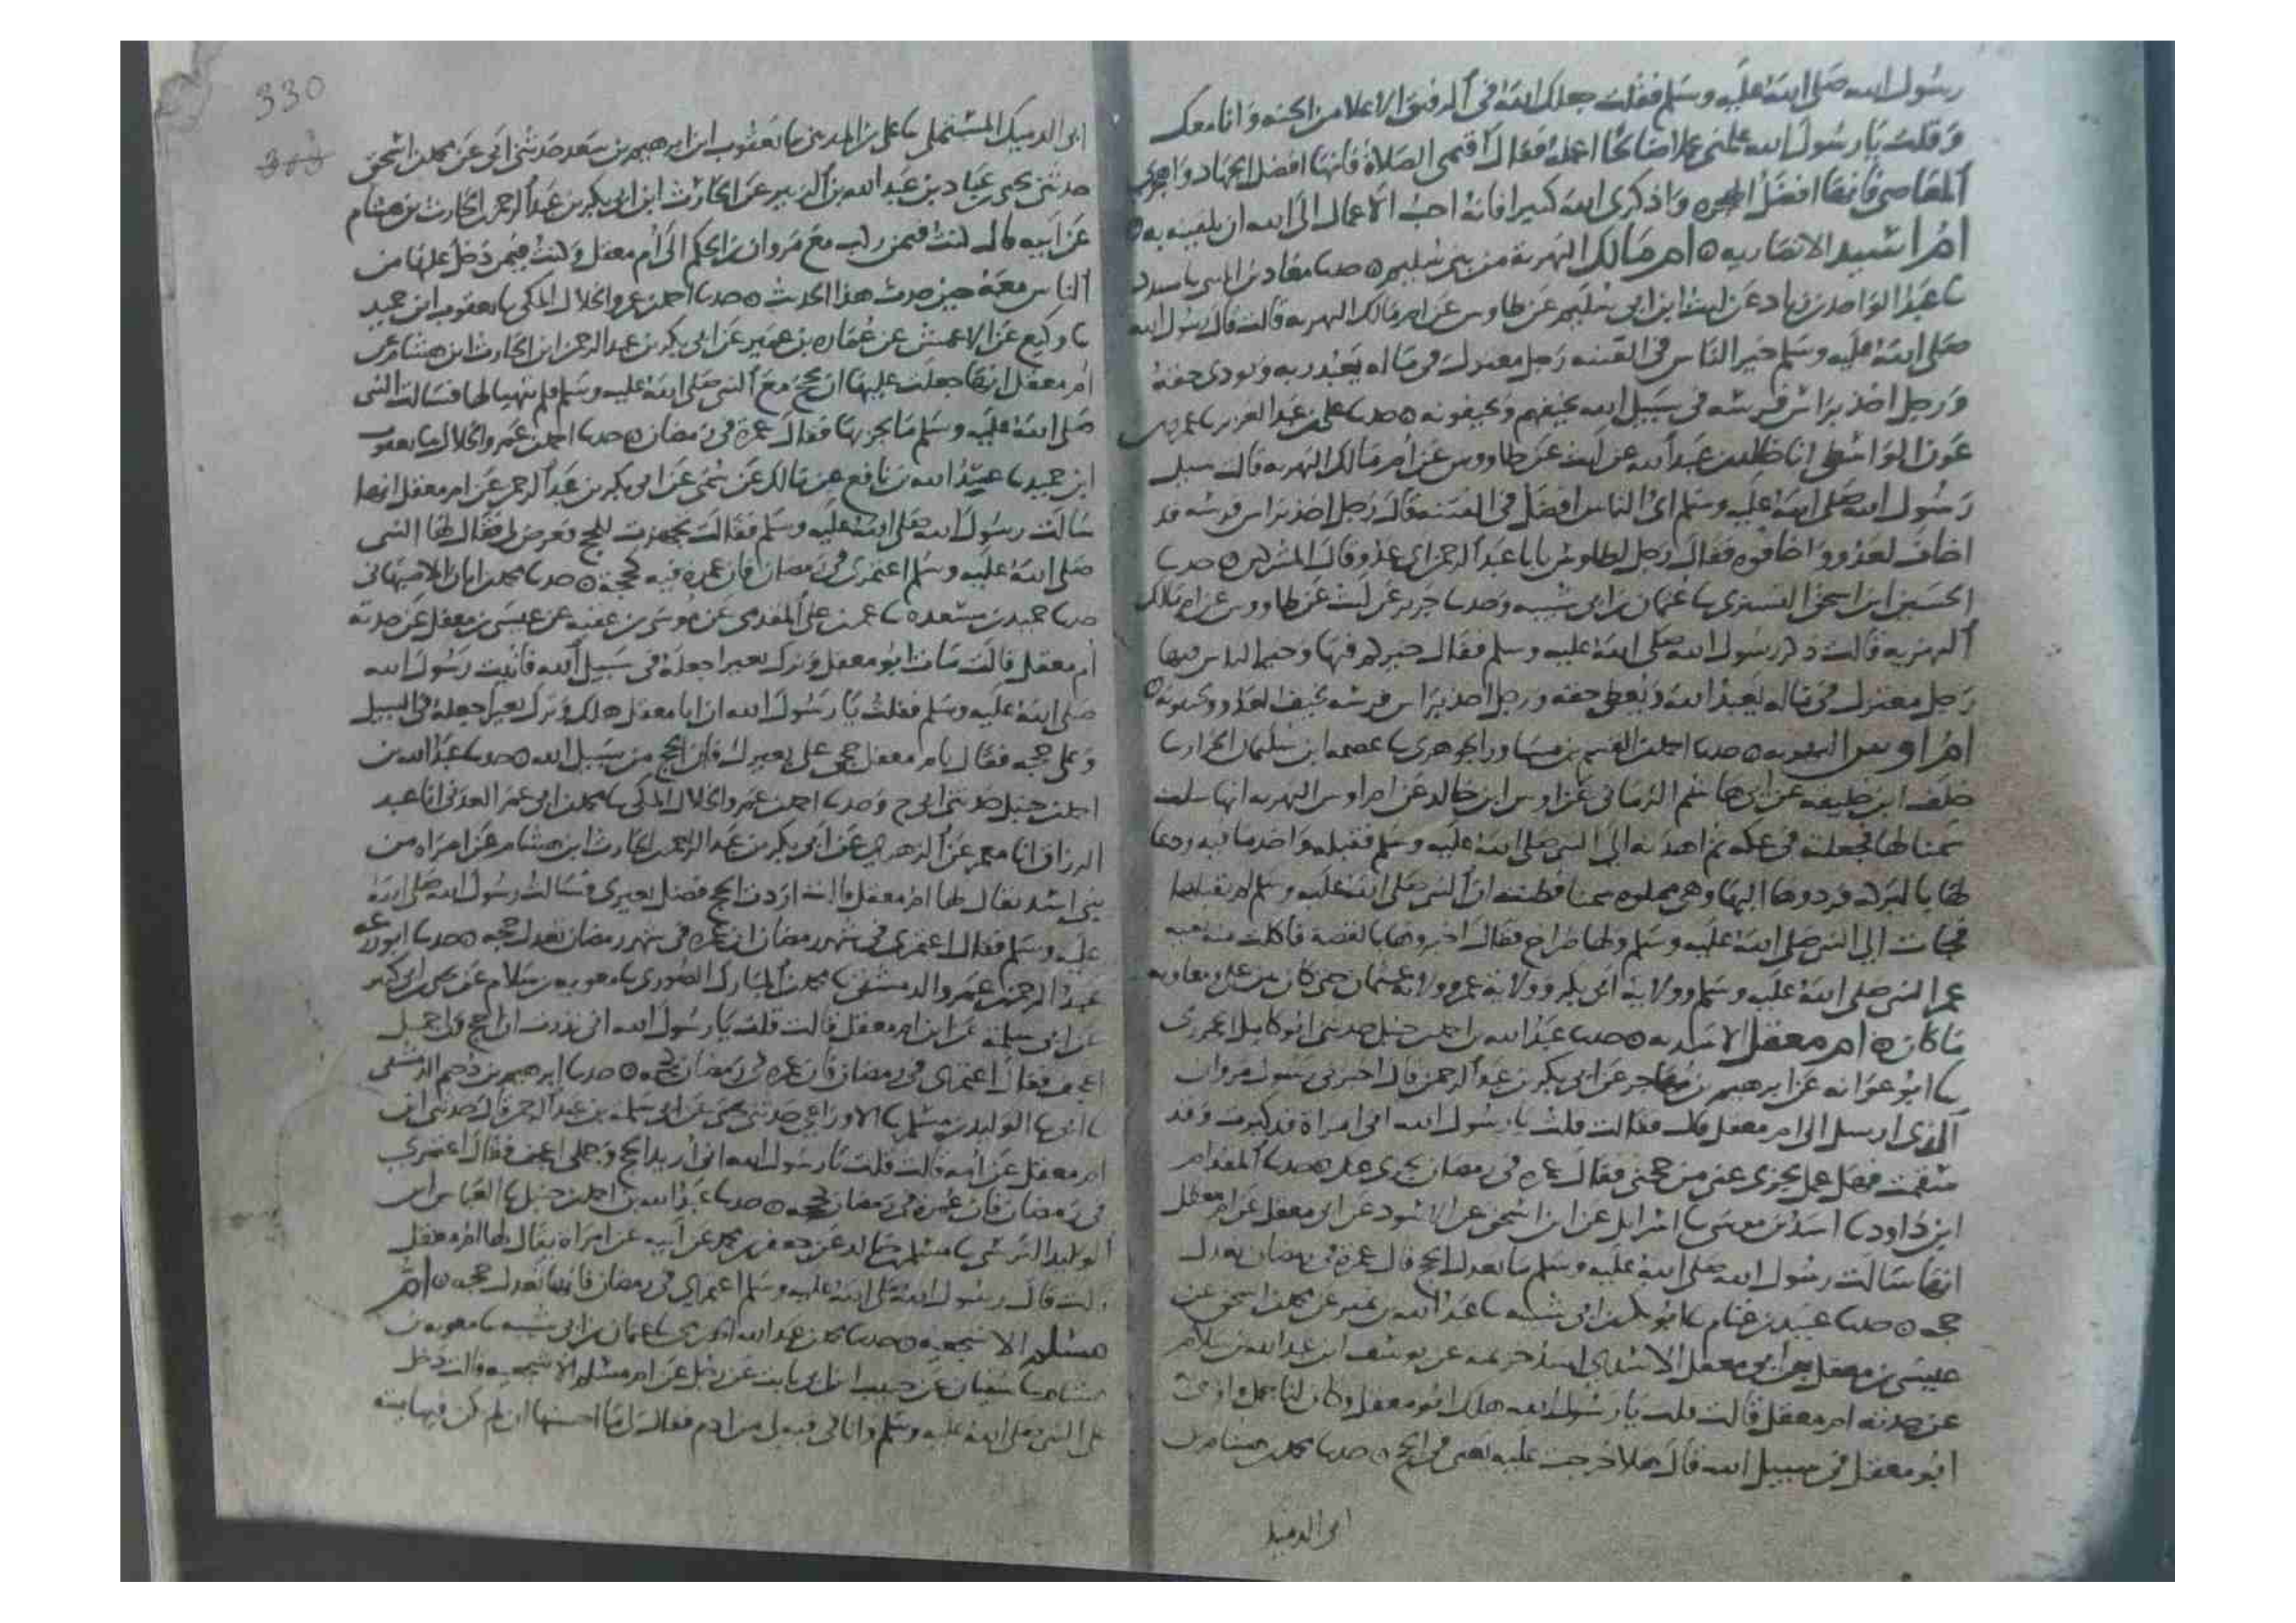 رسول الله صلى الله عليه وسلم فقلت جعلك الله في الرفيق الاعلا من الجنه وانا معك
وقلت يا رسول الله علمني عملا صالحا اعمله فقال اقيمي الصلاة فانها افضل الجهاد واهجري
المعاصي فانها افضل الهجره واذكري الله كثيرا فانه احب الاعمال الى الله ان يلقينه به ه
ام انس الانصاريه ه ام مالك البهزية من بني سليم ه حدثنا معاذ بن المثنى يا مسدد
يا عبد الواحد بن زياد عن ليث ابن ابي سليم عن طاوس عن ام مالك البهزيه قالت قال رسول الله
صلى الله عليه وسلم خير الناس في الفتنه رجل معتزل في ماله يعبد ربه ويودي حقه
ورجل اخذ براس فرسه في سبيل الله يخيفهم ويخيفونه ه حدثنا علي بن عبد العزيز يا عمرو بن
عون الواسطي انا خالد بن عبد الله عن ليث عن طاووس عن ام مالك البهزيه قالت سيل
رسول الله صلى الله عليه وسلم اي الناس افضل في الفتنه قال رجل اخذ براس فرسه قد
اخاف العدو واخافوه فقال رجل لطاوس يابا عبد الرحمن اي عدو قال المشركين ه حدثنا
الحسين ابن اسحق التستري يا عثمان بن ابي شيبه وحدثنا جرير عن ليث عن طاووس عن ام مالك
البهزيه قالت ذكر رسول الله صلى الله عليه وسلم فقال خيركم فيها وخير الناس فيها
رجل معتزل في ماله يعبد الله ويعطي حقه ورجل اخذ براس فرسه يخيف العدو ويخيفونه ه
ام اوس البهزيه ه حدثنا احمد بن القسم بن مساور الجوهري يا عصمه ابن سليمان الخزاز يا
خلف ابن خليفه عن ابي هاشم الرماني عن اوس ابن خالد عن ام اوس البهزيه انها سلت
سمنا لها فجعلته في عكه ثم اهدته الى النبي صلى الله عليه وسلم فقبله واخذ ما فيه ودعا
لها بالبركه فردوها اليها وهي مملوه سمنا فظنت ان النبي صلى الله عليه وسلم لم يقبلها
فجات الى النبي صلى الله عليه وسلم ولها صراخ فقال اخبروها بالقصة فاكلت منه بقيه
عمر النبي صلى الله عليه وسلم وولاية ابي بكر وولاية عمر وولاية عثمان حتى كان بين علي ومعاويه
ما كان ه ام معقل الاسديه ه حدثنا عبد الله بن احمد بن حنبل حدثني ابو كامل الجحدري
يا ابو عوانه عن ابرهيم بن مهاجر عن ابي بكر بن عبد الرحمن قال اخبرني رسول مروان
الذي ارسل الى ام معقل قال فقالت قلت يا رسول الله اني امراة قد كبرت وقد
سقمت فهل عمل يجزي عني من حجتي فقال عمره في رمضان تجزي حجه ه حدثنا المقدام
ابن داود يا اسد بن موسى يا اسرايل عن ابي اسحق عن الاسود عن ابي معقل عن ام معقل
انها سالت رسول الله صلى الله عليه وسلم ما يعدل الحج قال عمرة في رمضان تعدل
حجه ه حدثنا عبيد بن غنام يا ابو بكر بن ابي شيبه يا عبد الله بن نمير عن محمد بن اسحق عن
عيسى بن معقل بن ابي معقل الاسدي اسد خزيمه عن يوسف ابن عبد الله بن سلام
عن جدته ام معقل قالت قلت يا رسول الله هلك ابو معقل وكان لنا جمل اوصى
ابو معقل في سبيل الله قال هلا خرجت عليه فهي في الحج ه حدثنا محمد بن هشام بن
ابي الدميك
330
ابي الدميك المستملي يا علي بن المديني يا يعقوب ابن ابرهيم بن سعد حدثني ابي عن محمد بن اسحق
حدثني يحيى بن عباد بن عبد الله بن الزبير عن الحارث ابن ابي بكر بن عبد الرحمن الحارث بن هشام
عن ابيه قال كنت فيمن ركب مع مروان بن الحكم الى ام معقل وكنت فيمن دخل عليها من
الناس معه حين حدثت هذا الحديث ه حدثنا احمد بن عمرو الخلال المكي يا يعقوب ابن حميد
يا وكيع عن الاعمش عن عماره بن عمير عن ابي بكر بن عبد الرحمن ابن الحارث ابن هشام عن
ام معقل انها جعلت عليها ان تحج مع النبي صلى الله عليه وسلم فلم يتهيا لها فسالت النبي
صلى الله عليه وسلم ما يجزيها فقال عمرة في رمضان ه حدثنا احمد بن عمرو الخلال يا يعقوب
ابن حميد يا عبد الله بن نافع عن مالك عن سمي عن ابي بكر بن عبد الرحمن عن ام معقل انها
سالت رسول الله صلى الله عليه وسلم فقالت تجهزت للحج فعرض لي فقال لها النبي
صلى الله عليه وسلم اعتمري في رمضان فان عمرة فيه كحجة ه حدثنا محمد بن ابان الاصبهاني
حدثنا حميد بن مسعده يا عمر بن علي المقدمي عن موسى بن عقبه عن عيسى بن معقل عن جدته
ام معقل قالت مات ابو معقل وترك بعيرا جعله في سبيل الله فاتيت رسول الله
صلى الله عليه وسلم فقلت يا رسول الله ان ابا معقل هلك وترك بعيرا جعله في السبيل
وعلي حجه فقال يام معقل حجي على بعيرك فان الحج من سبيل الله ه حدثنا عبد الله بن
احمد بن حنبل حدثني ابي ح وحدثنا احمد بن عمرو الخلال المكي يا محمد بن ابي عمر العدني انا عبد
الرزاق انا معمر عن الزهري عن ابي بكر بن عبد الرحمن الحارث ابن هشام عن امراه من
بني اسد يقال لها ام معقل قالت اردت الحج فضل بعيري فسالت رسول الله صلى الله
عليه وسلم فقال اعتمري في شهر رمضان ان عمره في شهر رمضان تعدل حجه ه حدثنا ابو زرعه
عبد الرحمن بن عمرو الدمشقي يا محمد بن المبارك الصوري يا معويه بن سلام عن يحيى ابي كثير
عن ابي سلمة عن ابن ام معقل قالت قلت يا رسول الله اني نذرت ان احج وجملي
اعجف فقال اعتمري في رمضان فان عمره في رمضان كحجه ه حدثنا ابرهيم بن دحيم الدمشقي
يا ابي يا الوليد بن مسلم يا الاوزاعي حدثني يحيى عن ابي سلمه بن عبد الرحمن قال حدثني ابن
ام معقل عن امه قالت قلت يا رسول الله اني اريد الحج وجملي اعجف فقال اعتمري
في رمضان فان عمرة في رمضان كحجه ه حدثنا عبد الله بن احمد بن حنبل يا العباس ابن
الوليد النرسي يا مسلم بن خالد عن جعفر بن محمد عن ابيه عن امراة يقال لها ام معقل
قالت قال رسول الله صلى الله عليه وسلم اعتمري في رمضان فانها تعدل حجه ه ام
مسلم الاشجعيه ه حدثنا محمد بن عبد الله الحضرمي يا عثمان بن ابي شيبه يا معويه بن
هشام يا سفيان عن حبيب ابن ابي ثابت عن رجل عن ام مسلم الاشجعيه قالت دخل
علي النبي صلى الله عليه وسلم وانا في قبه من ادم فقال ما احسنها ان لم تكن فيها ميته